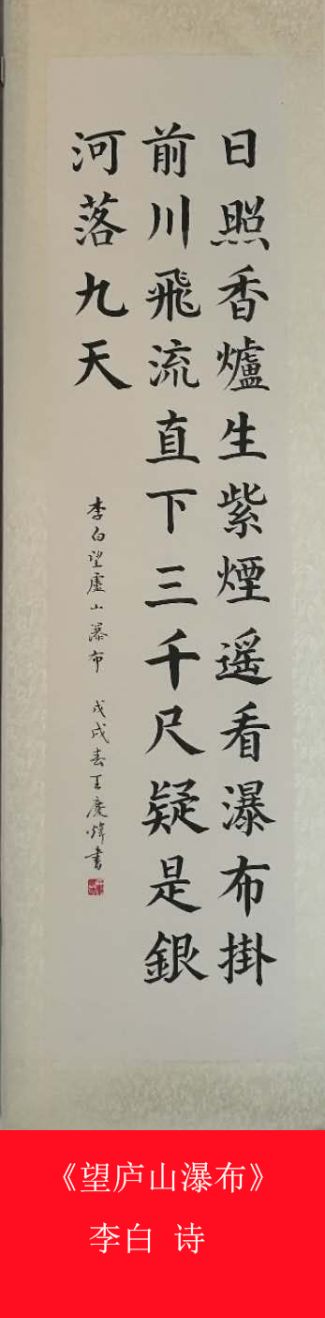 日照香爐生紫煙遥看瀑布掛
前川飛流直下三千尺疑是銀
河落九天
李白望廬山瀑布 戊戌春王慶煒書
《望庐山瀑布》
李白 诗